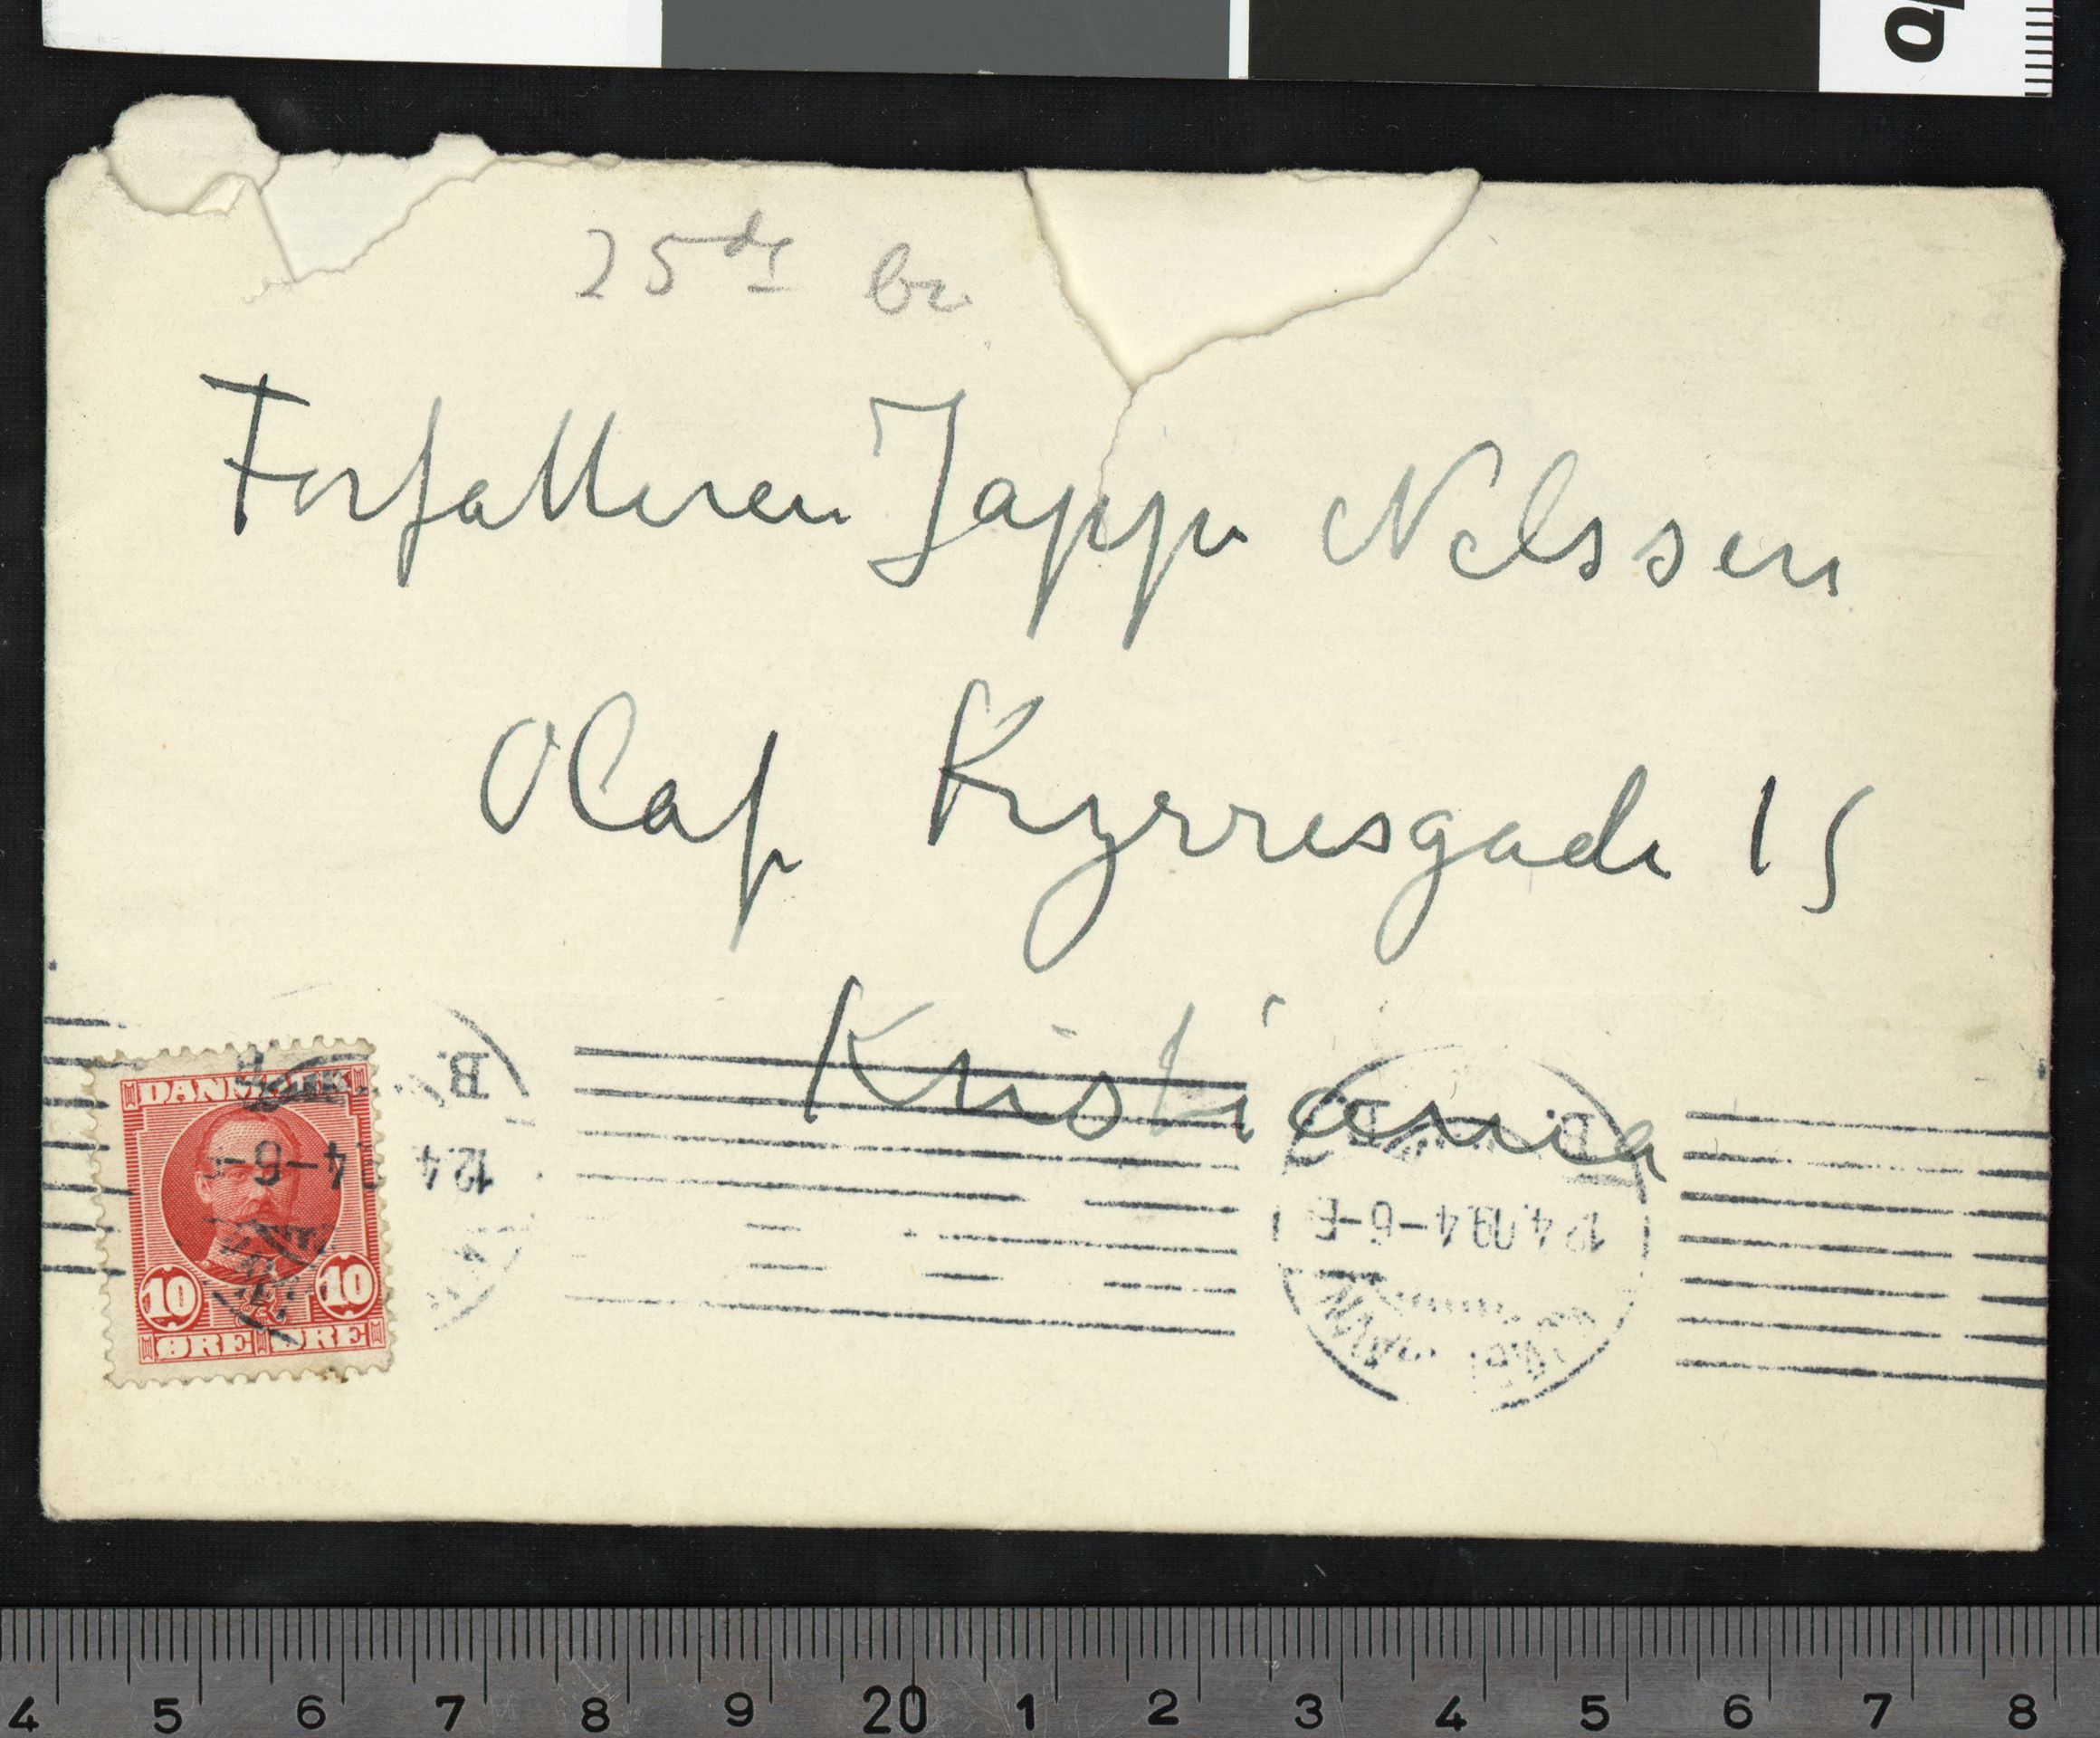 25de br
Forfatteren Jappe Nilssen
Olaf Kyrresgade 15
Kristiania
DANMARK
10 10
ØRE ØRE
B.
12.4.09.4-6-E
4 5 6 7 8 9 20 1 2 3 4 5 6 7 8